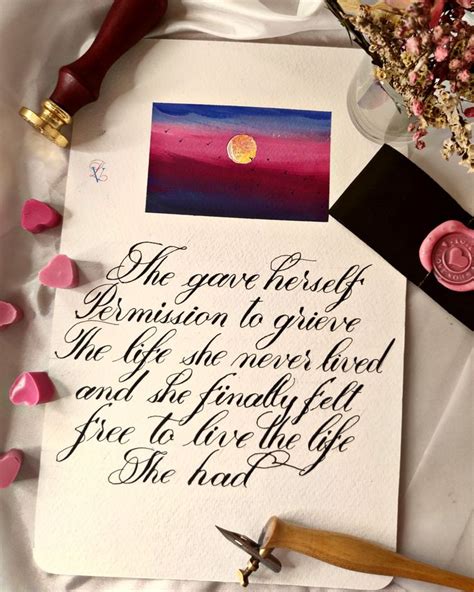 She gave herself
Permission to grieve
The life she never lived
and she finally felt
free to live the life
She had